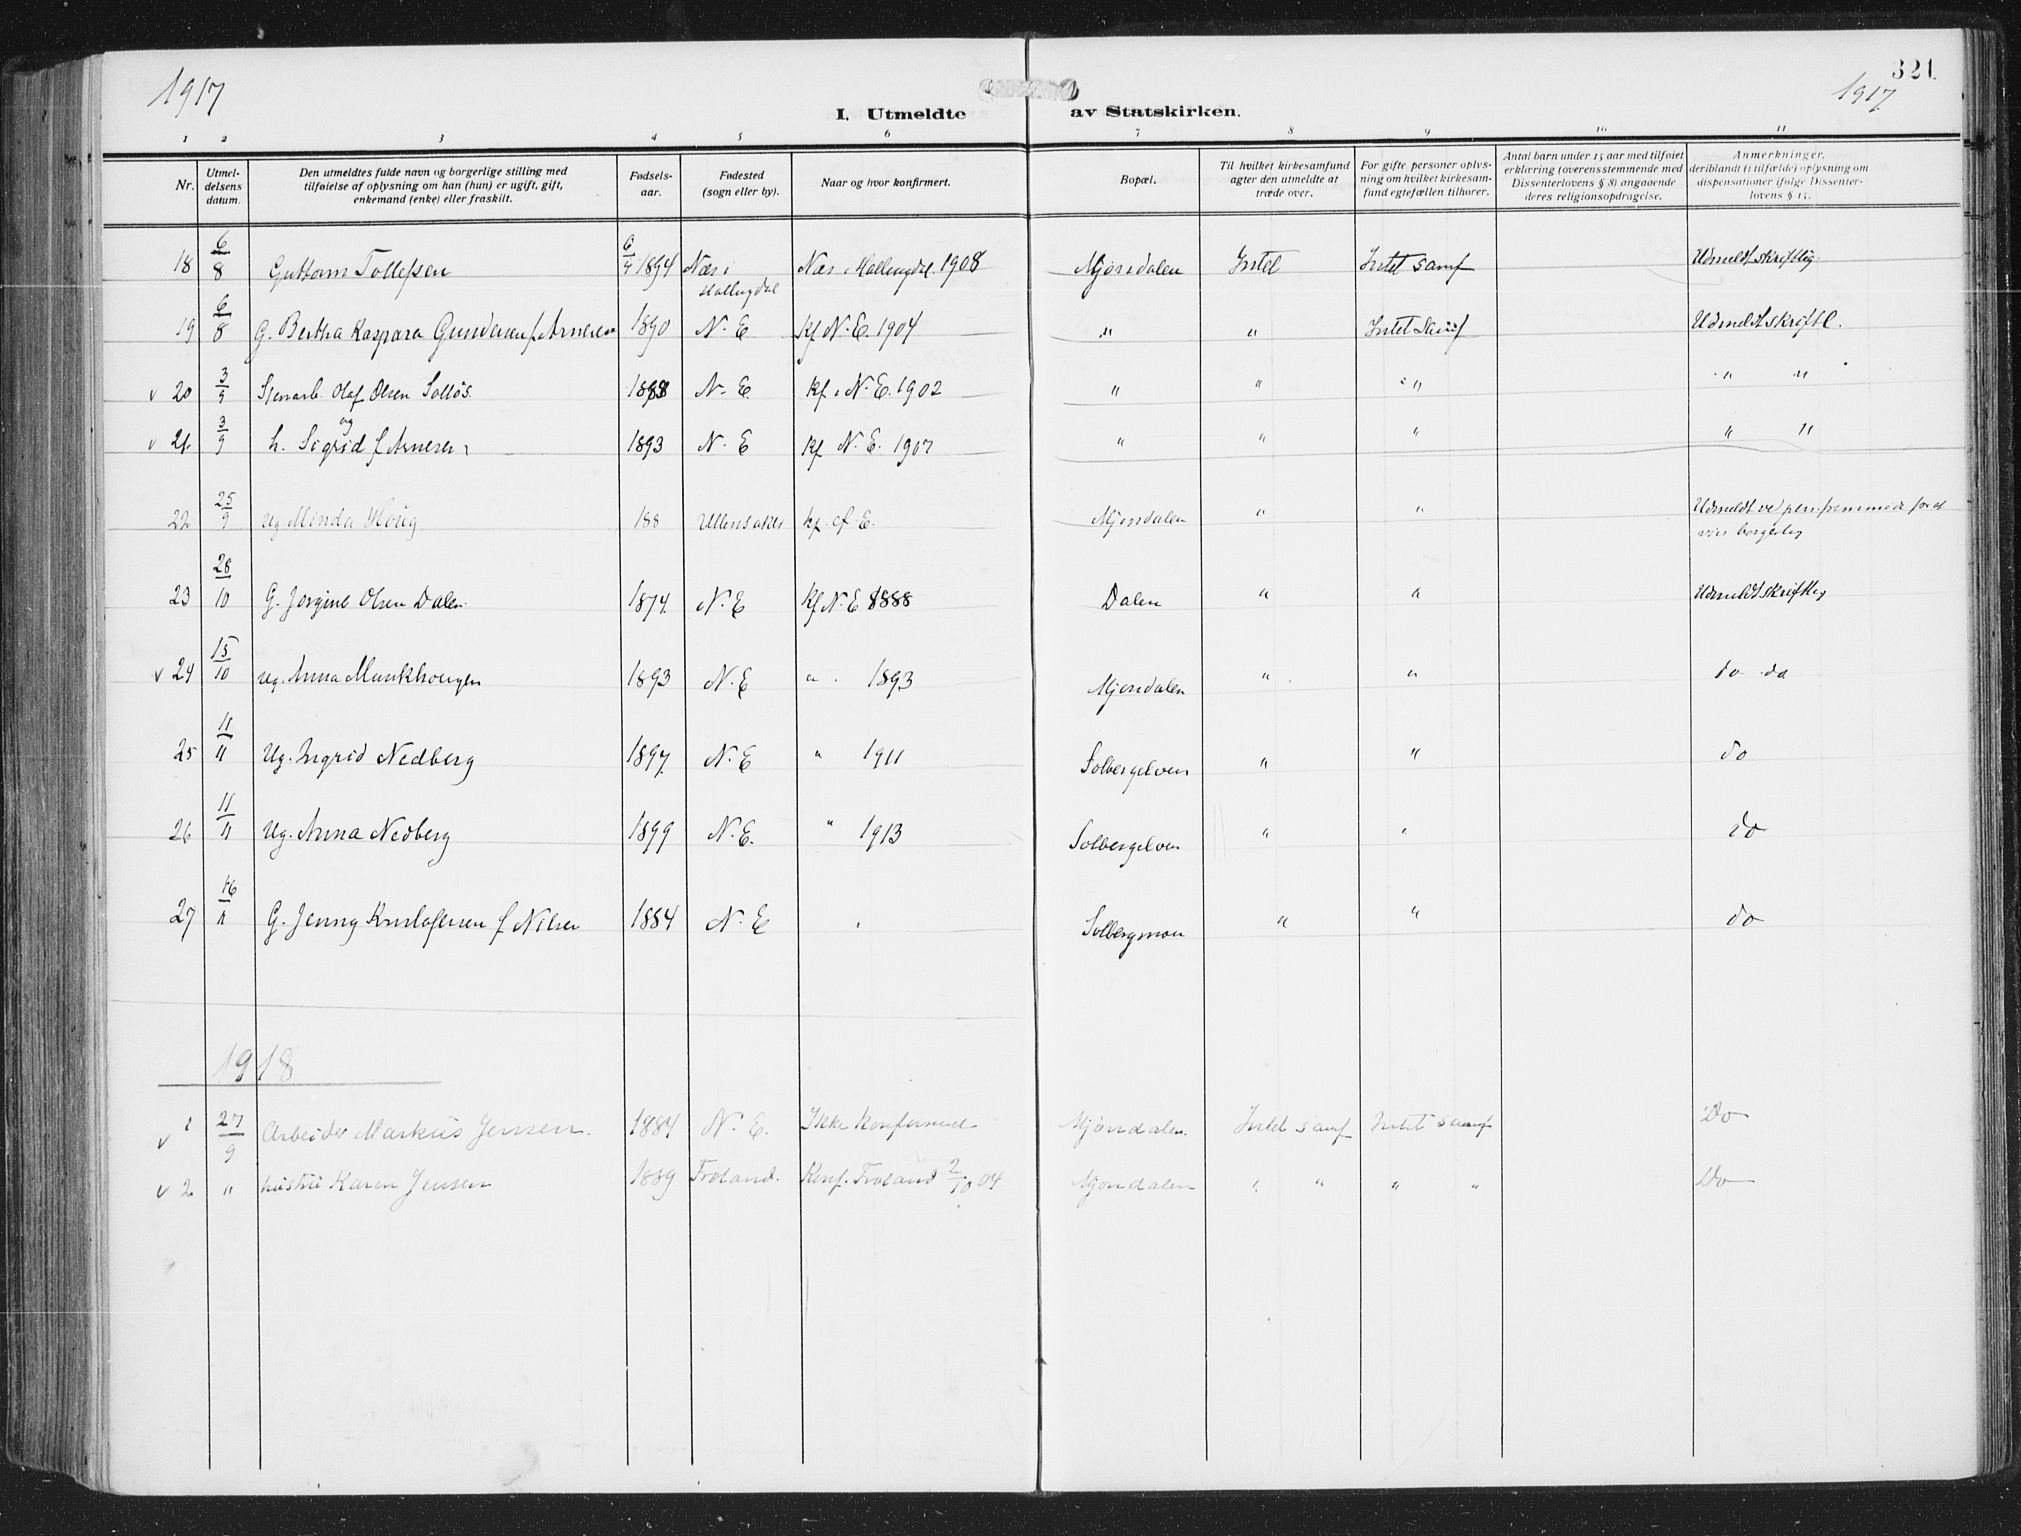 1917
321
1917.
I. Utmeldte av Statskirken.
1 2 3 4 5 6 7 8 9 10 11
Nr.
Utmel-
delsens
datum.
Den utmeldtes fulde navn og borgerlige stilling med
tilføielse af oplysning om han (hun) er ugift, gift,
enkemand (enke) eller fraskilt.
Fødsels-
aar.
Fødested
(sogn eller by).
Naar og hvor konfirmert.
Bopæl.
Til hvilket kirkesamfund
agter den utmeldte at
træde over.
For gifte personer oplys-
ning om hvilket kirkesam-
fund egtefællen tilhører.
Antal barn under 15 aar med tilføiet
erklæring (overensstemmende med
Dissenterlovens § 8) angaaende
deres religionsopdragelse.
Anmerkninger,
deriblandt (i tilfælde) oplysning om
dispensationer ifølge Dissenter-
lovens § 15.
18 6/8 Guttorm Tollefsen 6/4 1894 Næs i Hallingdal Næs i Hallingdal 1908 Mjøndalen Intet Intet samf Udmeldt skriftlig.
19 6/8 G. Bertha Kaspara Gundersen f. Arnesen 1890 N. E Kf N. E. 1904 " " Intet Samf Udmeldt skriftl.
v 20 3/9 Stenarb. Olaf Olsen Solløs. 1888 N. E Kf. i N. E. 1902 " " " " "
og
v 21 3/9 h. Sigrid f Arnesen 1893 N. E Kf N. E. 1907 " " " " "
22 25/9 ug Minda Houg 188 Ullensaker kf. af E. Mjøndalen " " Udmeldt ved pers. fremmøde for at
vies borgerlig
23 28/10 G. Jørgine Olsen Dalen. 1874. N. E Kf N. E 1888 Dalen " " Udmeldt skriftlig
v 24 15/10 ug. Anna Munkhougen 1893 N. E " 1893 Mjøndalen " " do do
25 11/11 Ug. Ingrid Nedberg 1897. N. E " 1911 Solbergelven " " do
26 11/11 Ug. Anna Nedberg 1899 N. E. " 1913 Solbergelven " " do
27 16/11 G. Jenny Kristofersen f Nilsen 1884 N. E " Solbergmoen " " do
1918
v 1 27/9 Arbeider Markus Jensen. 1884 N. E. Ikke Konfirmed Mjøndalen. Intet samf Intet samf Do
v 2 " hustru Karen Jensen 1889 Froland. Konf. Froland 2/10 04 Mjøndalen " " " " Do